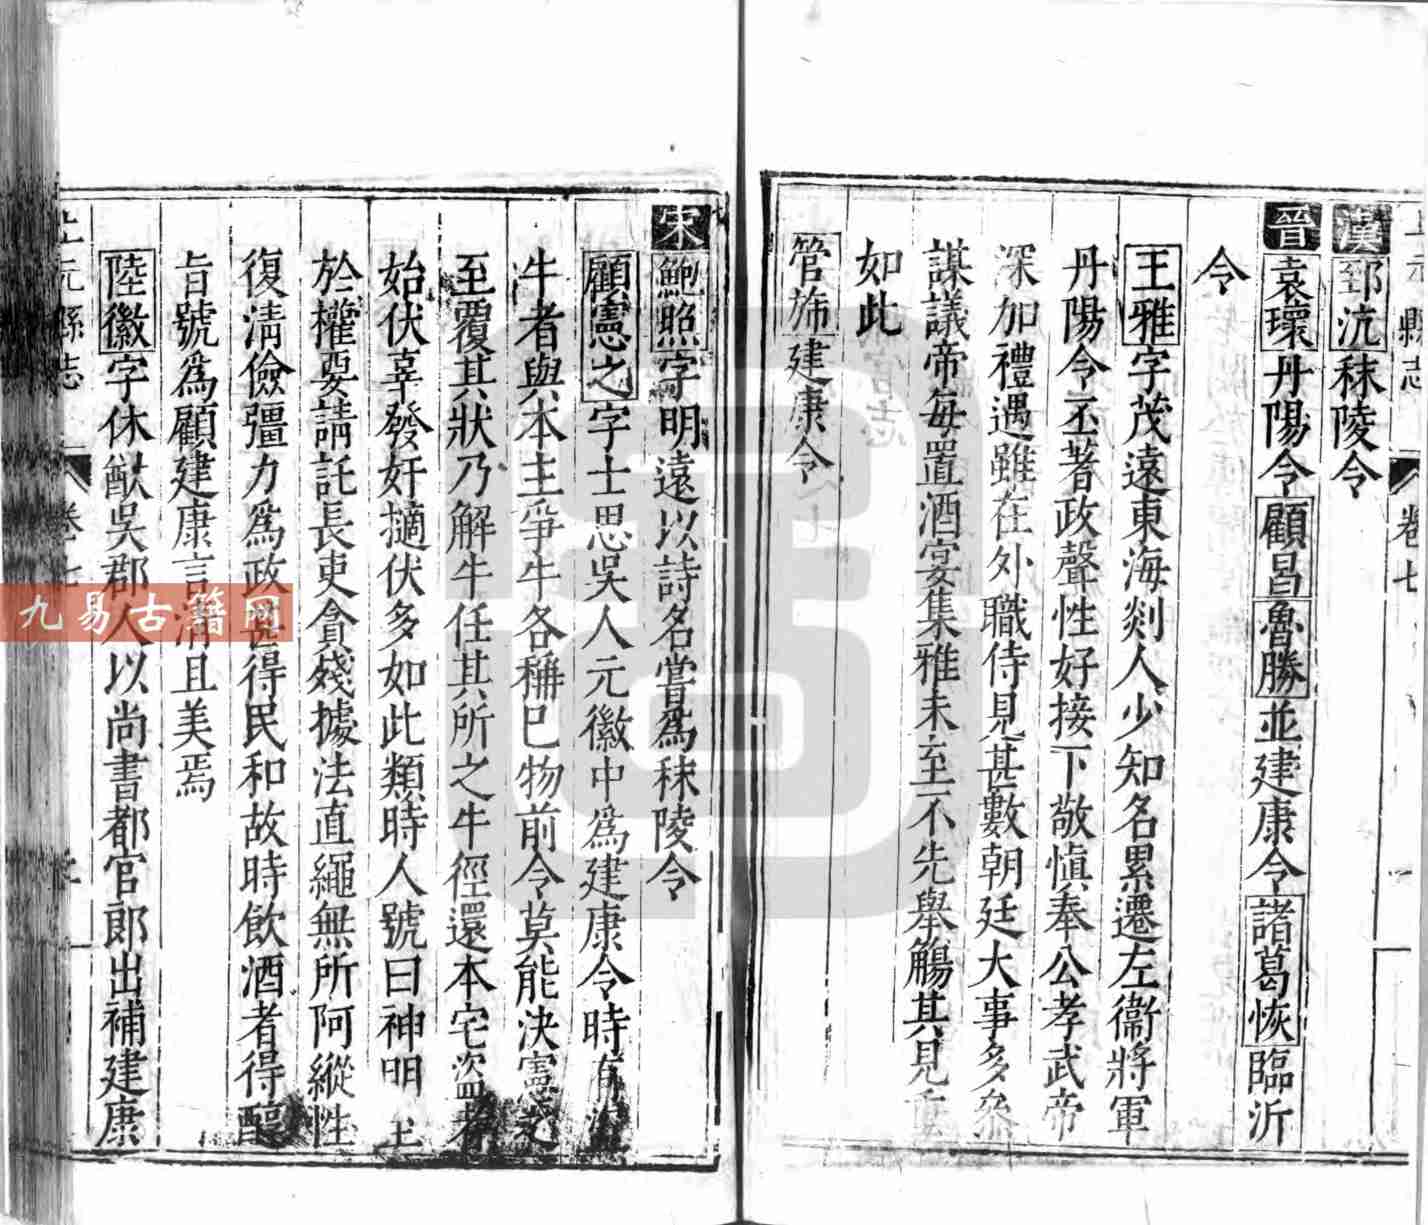 上元縣志
卷七
漢 郅沆秣陵令
晉 袁瓌丹陽令顧昌魯勝並建康令諸葛恢臨沂
令
王雅字茂遠東海郯人少知名累遷左衞將軍
丹陽令丕著政聲性好接下敬愼奉公孝武帝
深加禮遇雖在外職侍見甚數朝廷大事多叅
謀議帝每置酒宴集雅未至不先舉觴其見重
如此
管斾建康令
宋 鮑照字明遠以詩名嘗爲秣陵令
顧憲之字士思吳人元徽中爲建康令時有盜
牛者與本主爭牛各稱己物前令莫能決憲之
至覆其狀乃解牛任其所之牛徑還本宅盜者
始伏辜發奸擿伏多如此類時人號曰神明至
於權要請託長吏貪殘據法直繩無所阿縱性
復淸儉彊力爲政甚得民和故時飲酒者得醇
旨號爲顧建康言淸且美焉
陸徽字休猷吳郡人以尚書都官郎出補建康
上元縣志
卷七
九易古籍网